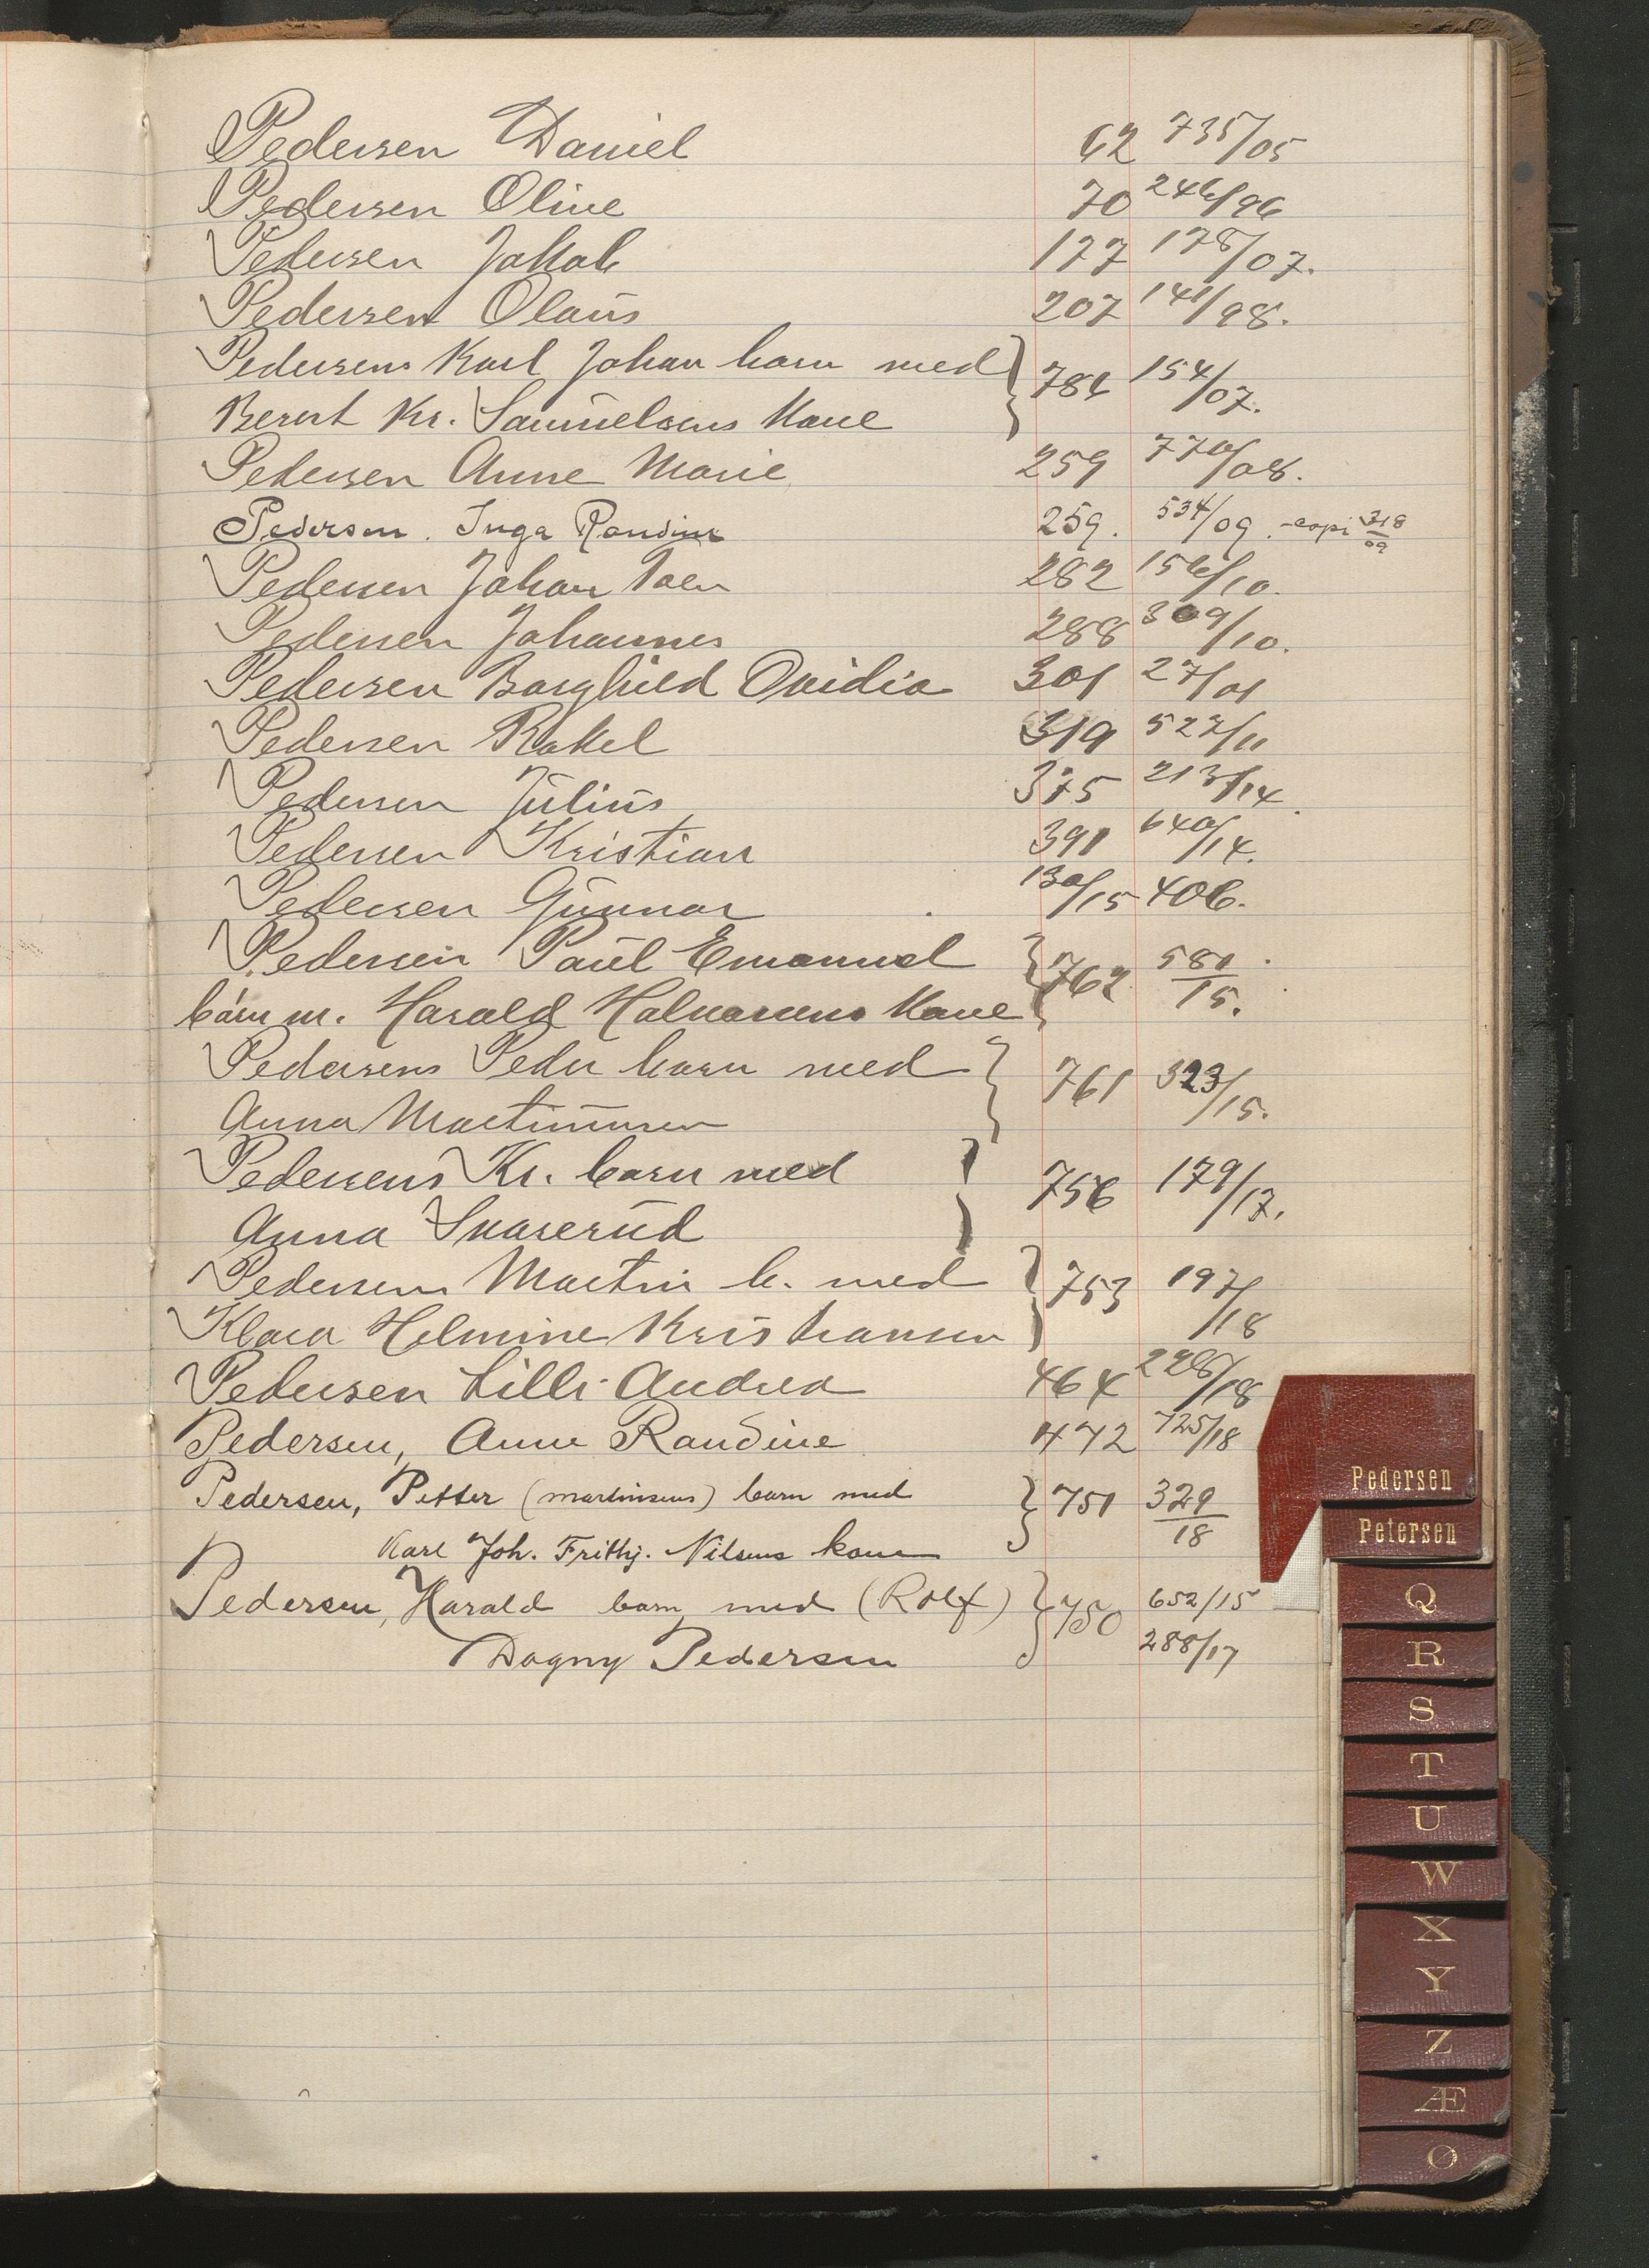 Pedersen Daniel 62 735/05
Pedersen Oline 70 246/96
Pedersen Jakob 177 178/07.
Pedersen Olaus 207 141/98.
Pedersens Karl Johan barn med } 784 154/07.
Berent Kr. Samuelsens Kone
Pedersen Anne Marie 259 770/08.
Pedersen. Inga Randine 259. 534/09. -copi 318/09
Pedersen Johan 282 156/10.
Pedersen Johannes 288 309/10.
Pedersen Borghild Ovidia 301 27/01
Pedersen Rakel 319 527/11
Pedersen Julius 375 213/14.
Pedersen Kristian 391 640/14.
Pedersen Gunnar 130/15 406.
Pedersen Paul Emanuel } 762 581/15.
barn m. Harald Halvorsens Kone
Pedersens Peder barn med } 761 323/15.
Anna Martinsen
Pedersens Kr. barn med } 756 179/17.
Anna Svarerud
Pedersens Martin b. med } 753 197/18
Klara Helmine Kristiansen
Pedersen Lilli Andrea 464 228/18
Pedersen, Anne Randine 472 725/18
Pedersen, Petter (Martinsens) barn med } 751 329/18
Karl Joh. Frithj. Nilsens kone
Pedersen, Harald barn med (Rolf) } 750 652/15
Dagny Pedersen 288/17
Pedersen
Petersen
Q
R
S
T
U
W
X
Y
Z
Æ
Ø